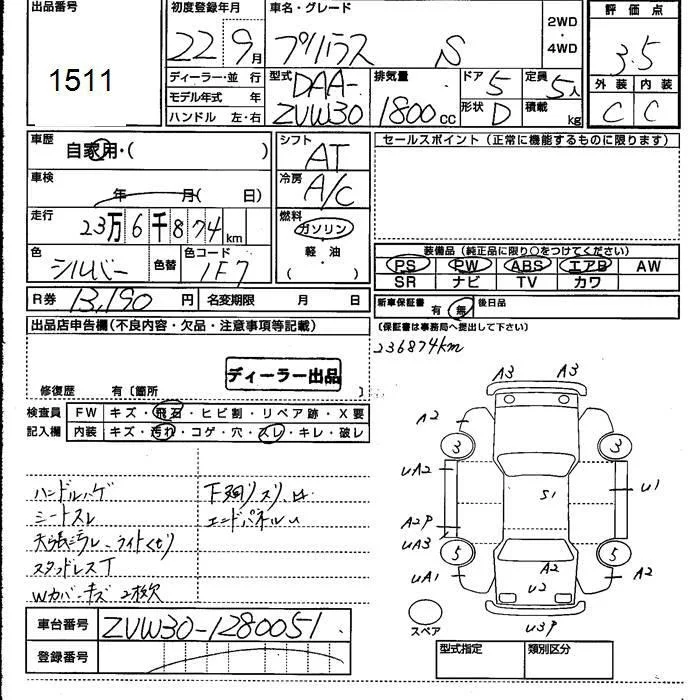 出品番号
1511
初度登録年月
22 9月
車名・グレード
プリウス S
2WD
・
4WD
評価点
3.5
外装 内装
C C
ディーラー・並行
モデル年式 年
ハンドル 左・右
型式
DAA-
ZVW30
排気量
1800cc
ドア 5
形状 D
定員 5人
積載 kg
車歴
自家用・( )
車検
年 月( 日)
走行
23万6千874km
色
シルバー
色替
色コード
1F7
シフト
AT
冷房
A/C
燃料
ガソリン
軽油
( )
セールスポイント (正常に機能するものに限ります)
装備品 (純正品に限り○をつけてください)
PS PW ABS エアB AW
SR ナビ TV カワ
R券 13,190円
名変期限 月 日
新車保証書 有 無 後日品
(保証書は事務局へ提出して下さい)
236874km
出品店申告欄(不良内容・欠品・注意事項等記載)
ディーラー出品
修復歴 有〔箇所 〕
検査員
記入欄
FW キズ・飛石・ヒビ割・リペア跡・X要
内装 キズ・汚れ・コゲ・穴・スレ・キレ・破レ
ハンドルハゲ
シートスレ
天張汚レ、ライトくもり
スタッドレスT
Wカバーキズ 2枚欠
下廻りスリ、サ
エンドパネルU
A3 A3
A2
3 3
UA2
U1
S1
A2P
UA3
5 5
UA1
A2
A2
U2
U3P
スペア
車台番号 ZVW30-1280051
登録番号
型式指定 類別区分